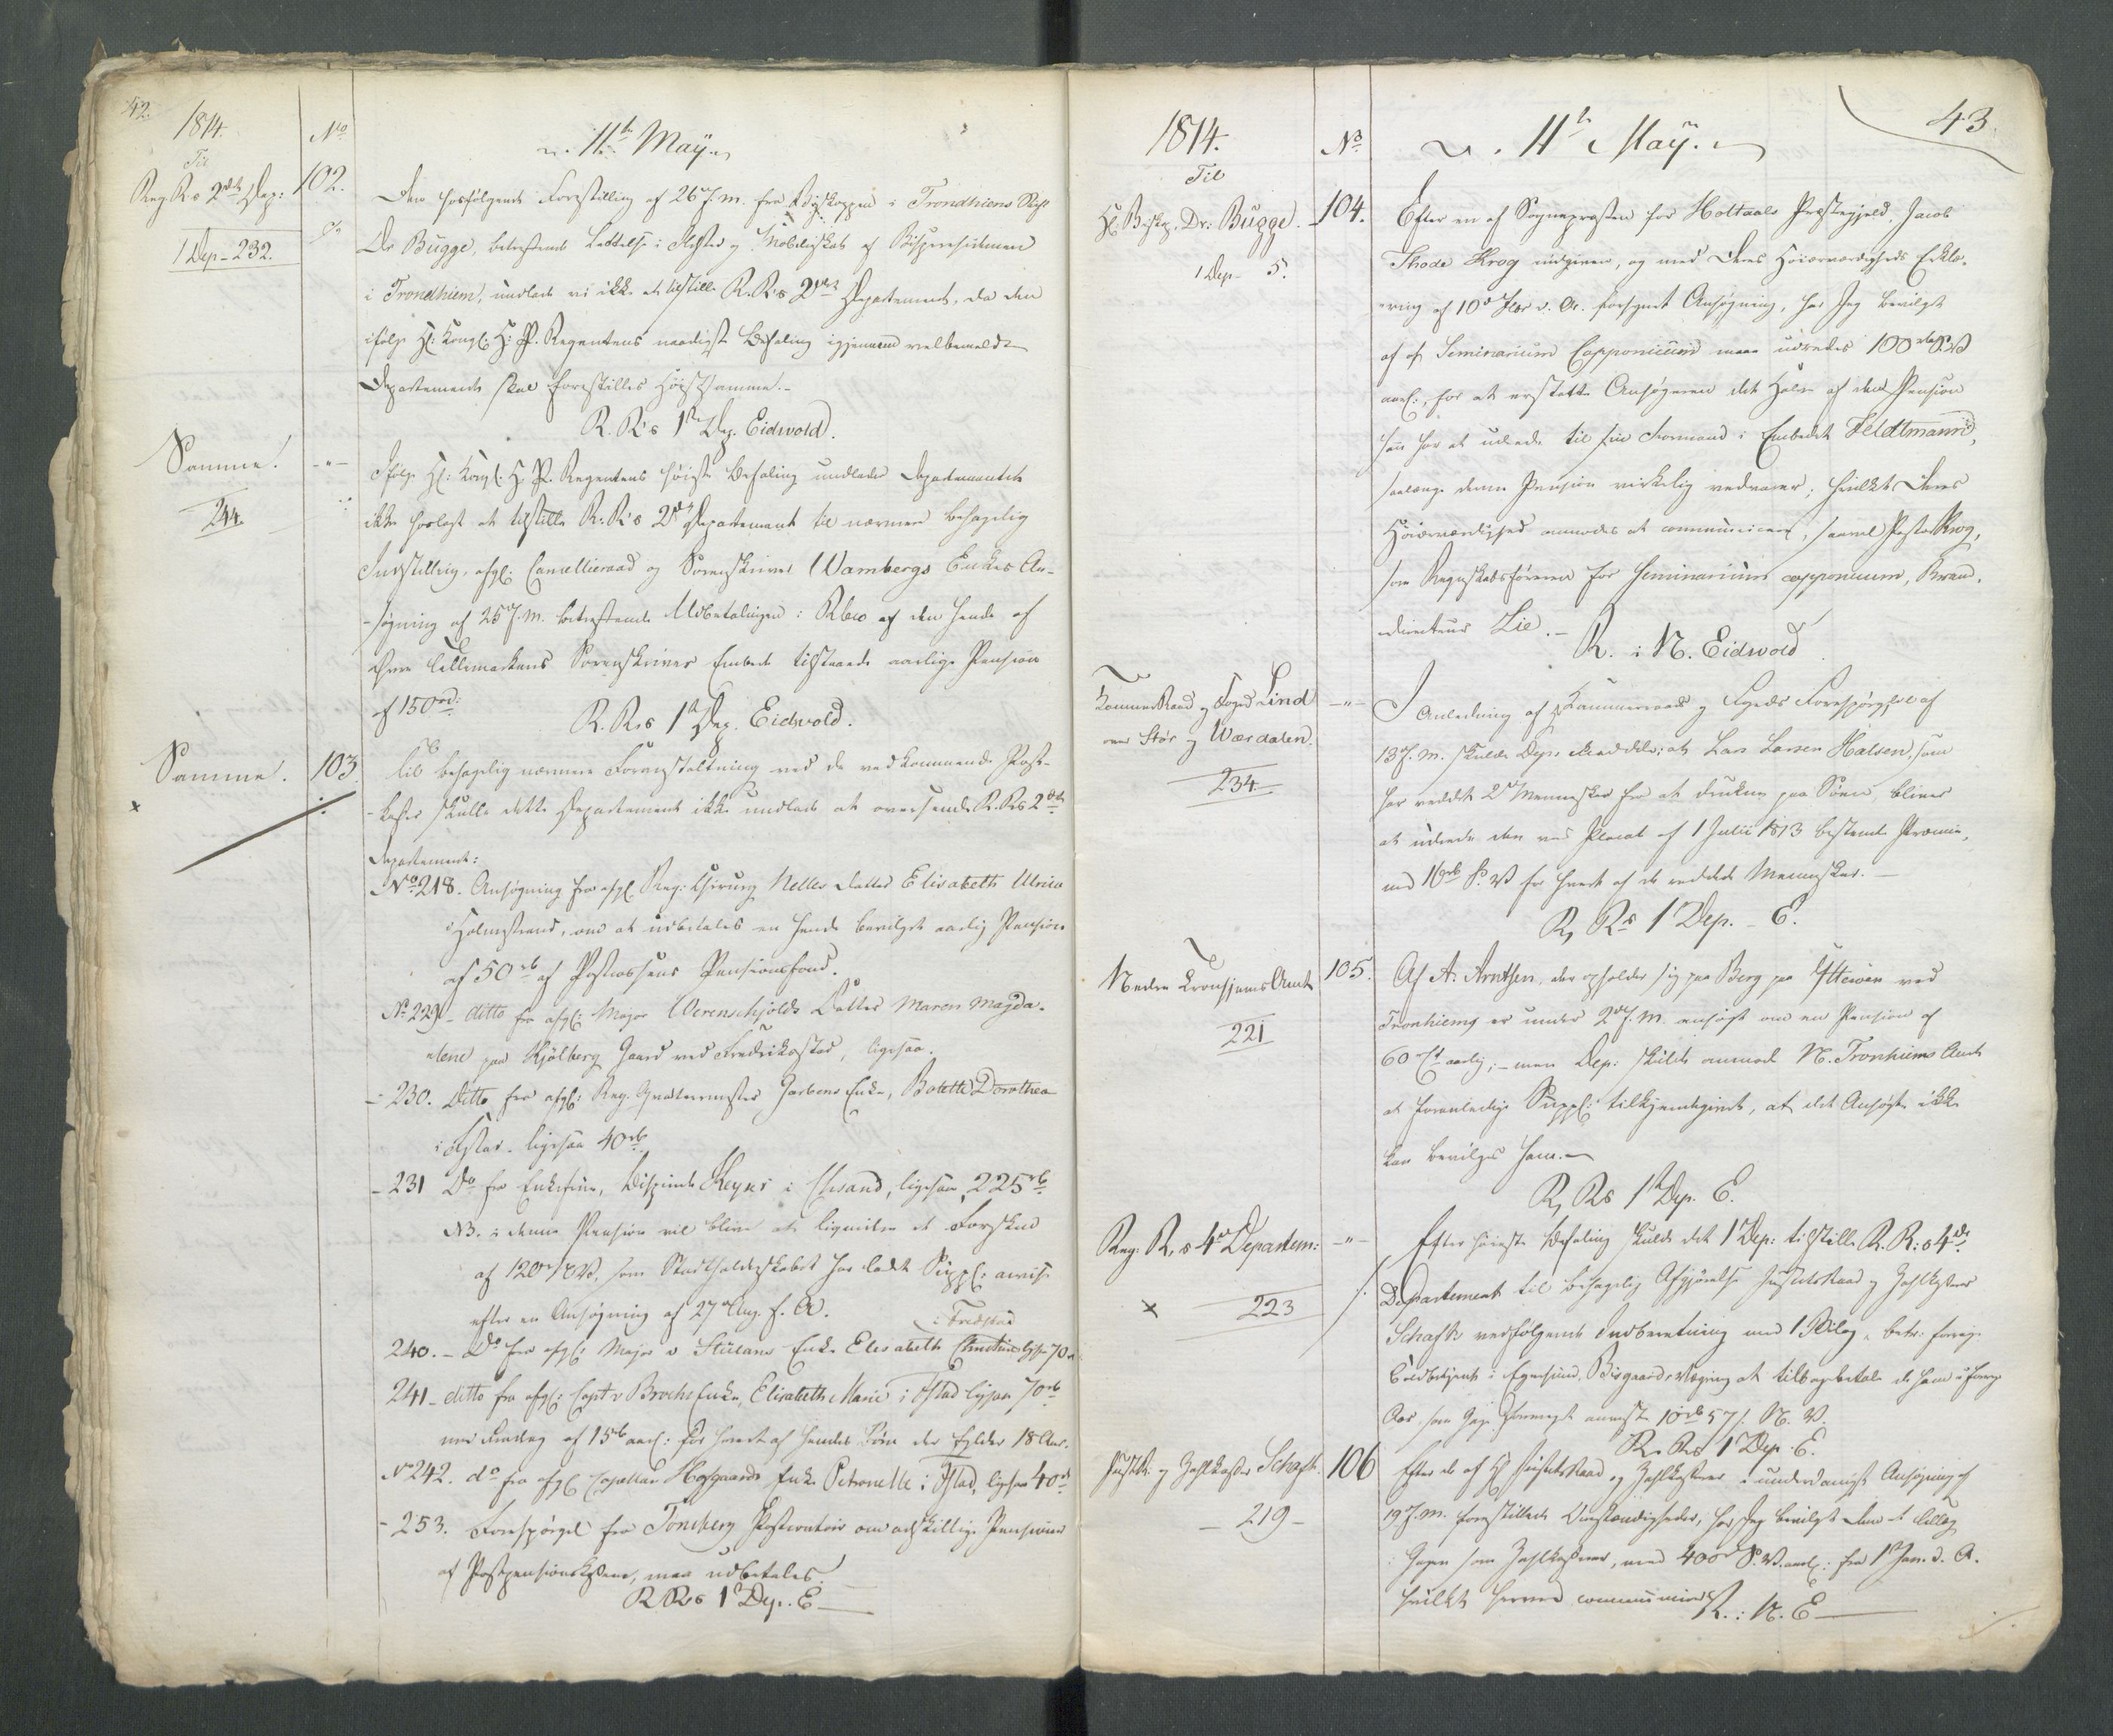 42.
1814.
Til
No
11te May
Reg. R's 2det Dep:
102.
Den hosfølgende Forestilling af 26 f. M. fra Biskoppen i Trondhiems Stift
1 Dep - 232.
Dr Bugge, betreffende Lettelse i Skatter og Mobelieskab af Bisperesidencen
i Trondhiem, undlade vi ikke at tilstille R. R's 2det Departement, da den
ifølge Hs: Kongl: H: P. Regentens naadigste Befaling igjennem velbemeldte
Departement skal forestilles Høistsamme.-
R. R's 1te Dep. Eidwold.
Samme.
- " -
244
Ifølge Hs: Kongl: H. P. Regentens høieste Befaling undlader Departementet
ikke herlagt at tilstille R. R's 2det Departement til nærmere behagelig
Indstilling, afgl: Cancellieraad og Sorenskriver Wambergs Enkes An-
søgning af 25 f. M. betreffende Udbetalingen i Rbco af den hende af
Øvre Tellemarkens Sorenskriver Embede tilstaaede aarlige Pension
af 150 rd:
R. R's 1te Dep. Eidwold.
Samme.
103
Til behagelig nærmere Foranstaltning ved de vedkommende Post-
kasser skulle dette Departement ikke undlade at oversende R. R's 2det
Departement:
No 218. Ansøgning fra afgl Reg: Chirurg Nelles Datter Elisabeth Ulrica
i Holmestrand, om at udbetales en hende bevilget aarlig Pension
af 50 rb af Postcassens Pensionsfond.
No 229 - ditto fra afgl: Major Werenschjolds Datter Maren Magda-
lene paa Kjølberg Gaard ved Fredrikstad, ligesaa.
- 230. Ditto fra afgl: Reg. Qvarteermester Jacobsens Enke, Bolette Dorothea
i Fstad. ligesaa 40 rb
- 231 Do fra Enkefrue, Bispinde Keyser i Chsand, ligesaa 225 rb
NB. i denne Pension vil blive at liqvidere et Forskud
af 120 rd, som Statholderskabet har ladet Suppl: anvise
efter en Ansøgning af 27 Aug. f. A.
i Fredstad
240. - Do fra afgl: Major v Stülans Enke Elisabeth Christine ligs. 70
241 - ditto fra afgl: Capt v Brochs Enke, Elisabeth Marie i Fstad ligesaa 70 rb
med Fradrag af 15 rb aarl: for hvert af hendes Børn der fylder 18 Aar.
No 242. do fra afgl Capellan Hofgaards Enke Petronelle i Fstad, ligesaa 40 rb
- 253. Forespørgsel fra Tønsberg Postcontoir om adskillige Pensioner
af Postpensionskassen, maa udbetales.
R R's 1te Dep. E
43.
1814.
Til
No
11te May.
Hs: Biskop Dr: Bugge.
104.
1 Dep - 5.
Efter en af Sognepræsten for Holtaals Præstegjeld, Jacob
Thode Krog indgiven, og med Deres Høiærværdigheds Erklæ-
ering af 10de Febr d. A. forsynet Ansøgning, har Jeg bevilget
at af Seminarium Lapponicum maae udredes 100 rbd S.V
aarl:, for at erstatte Ansøgeren det Halve af den Pension
han har at udrede til sin Formand i Embedet Feldtmann,
saalænge denne Pension virkelig vedvarer, hvilket Deres
Høiærværdighed anmodes at communicere, saavel Pastor Krog,
som Regnskabsføreren for Seminarium lapponicum, Brand-
directeur Lie.-
R. i N. Eidwold
KammerRaad og Foged Lind
over Stør og Wærdalen.
- " -
234
I Anledning af Hr Kammerraad og Fogeds Forespørgsel af
13 f. M. skulde Dep: meddele: at Lars Larsen Halsen, som
har reddet 2 Mennesker fra at drukne paa Søen, bliver
at udrede den ved Placat af 1 Julii 1813 bestemte Præmie,
med 16 rb S. V for hvert af de reddede Mennesker. -
R, Rs 1 Dep. - E.
Nordre Trondhjems Amt
105.
221
Af A: Arntsen, der opholder sig paa Berg paa Ytterøen ved
Tronhiem er under 2 f. M. ansøgt om en Pension af
60 rd aarlig; - men Dep: skulde anmode N. Tronhiems Amt
at foranledige Suppl: tilkjendegivet, at det Ansøgte ikke
kan bevilges ham.-
R, Rs 1te Dep. E.
Reg. R.s 4de Departem:
- " -
x 223
Efter høieste Befaling skulde det 1 Dep: tilstille R. R:s 4de
Departement til behagelig Afgjørelse Justitsraad og Zahlkasserer
Schafts vedfølgende Indberetning med 1 Bilag, betr: forrige
Toldbetjent i Egersund, Bisgaard, Vægring at tilbagebetale de ham i forrige
Aar, som Gage formegt anviste 10 rb 57 s: N. V.
R. Rs 1 Dep. E.
Justitsr. og Zahlkasser Schaft.
106
- 219 -
Efter de af Hr Justitsraad og Zahlkasserer i underdanigst Ansøgning af
19 f. M. forestillede Omstændigheder, har Jeg bevilget Dem et Tillæg
i Gagen som Zahlkasserer, med 400 rd S. V. aarl: fra 1 Jan. d. A.
hvilket herved communiceres.
R. i N. E